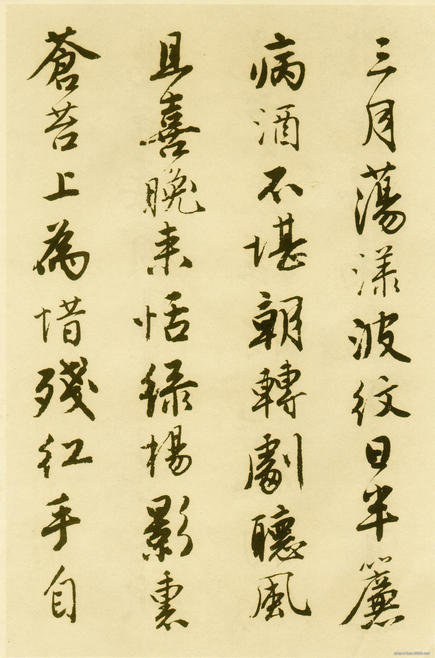 三月蕩漾波紋日半簾
病酒不堪朝轉劇聽風
且喜晚来恬綠楊影裏
蒼苔上為惜殘紅手自